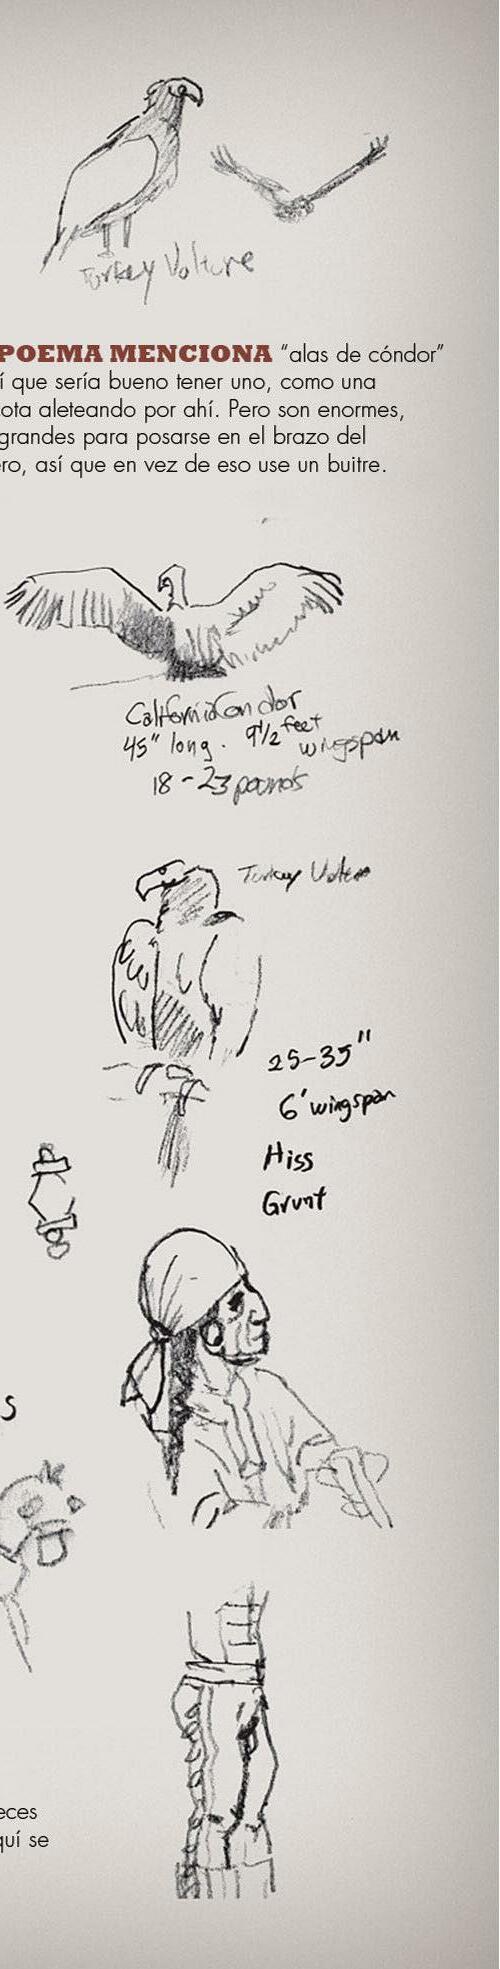 Turkey Vulture
POEMA MENCIONA “alas de cóndor”
í que sería bueno tener uno, como una
cota aleteando por ahí. Pero son enormes,
grandes para posarse en el brazo del
ero, así que en vez de eso use un buitre.
California Condor
45" long. 9½ feet
wingspan
18-23 pounds
Turkey Vulture
25-35"
6' wingspan
Hiss
Grunt
s
eces
quí se